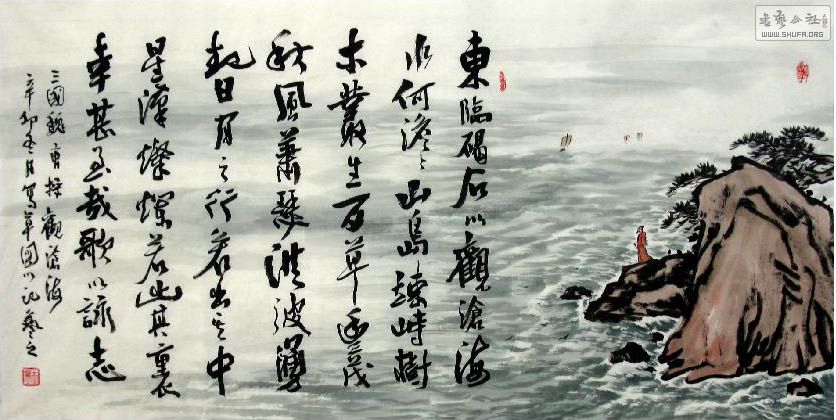 書藝公社
WWW.SHUFA.ORG
東臨碣石以觀滄海
水何澹々山島竦峙樹
木叢生百草豐茂
秋風蕭瑟洪波湧
起日月之行若出其中
星漢燦爛若出其裏
幸甚至哉歌以詠志
三國魏曹操觀滄海
辛卯月寫草圖以記